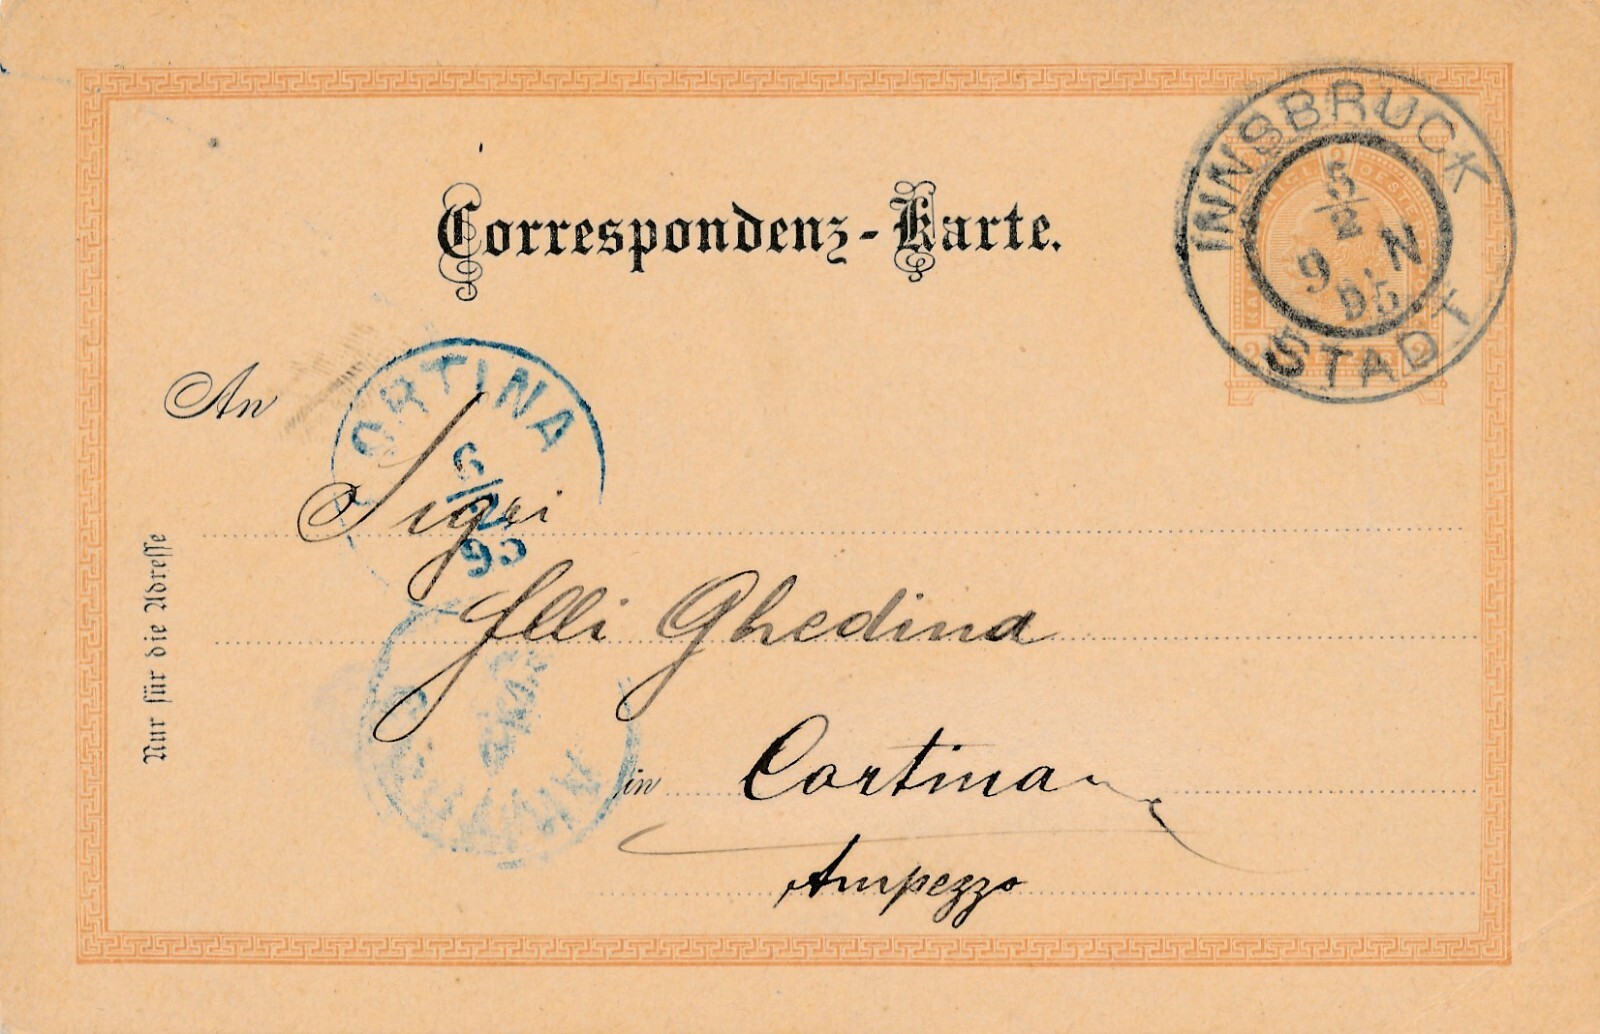 Correspondenz-Karte.
INNSBRUCK
5/2
9.N
95
STADT
An
CORTINA
6/2
95
Sigri
flli Ghedina
in Cortina
Ampezzo
Nur für die Adresse